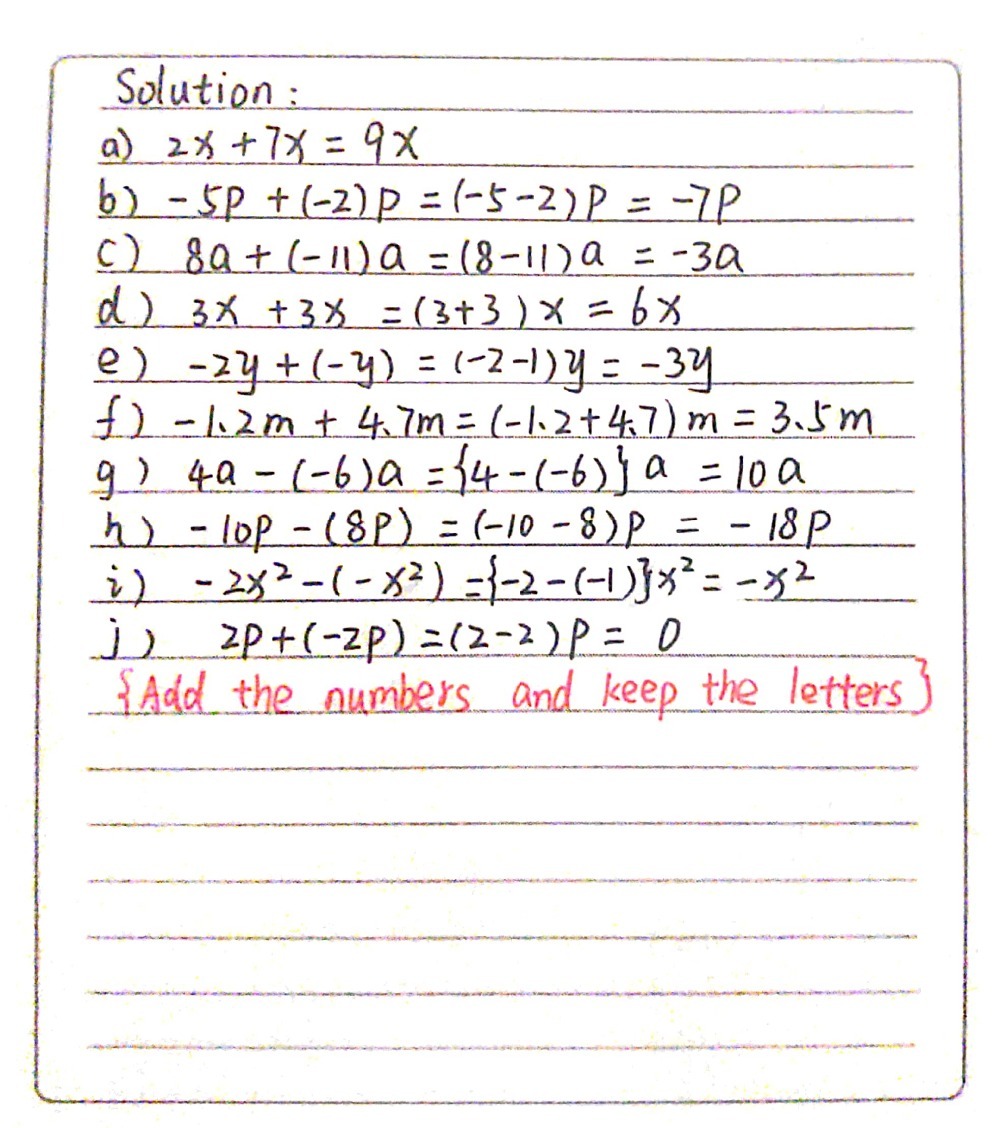 Solution :
a) 2x + 7x = 9x
b) -5p + (-2)p = (-5-2)p = -7p
c) 8a + (-11)a = (8-11)a = -3a
d) 3x + 3x = (3+3)x = 6x
e) -2y + (-y) = (-2-1)y = -3y
f) -1.2m + 4.7m = (-1.2+4.7)m = 3.5m
g) 4a - (-6)a = {4-(-6)}a = 10a
h) -10p - (8p) = (-10-8)p = -18p
i) -2x² - (-x²) = {-2-(-1)}x² = -x²
j) 2p + (-2p) = (2-2)p = 0
{Add the numbers and keep the letters}